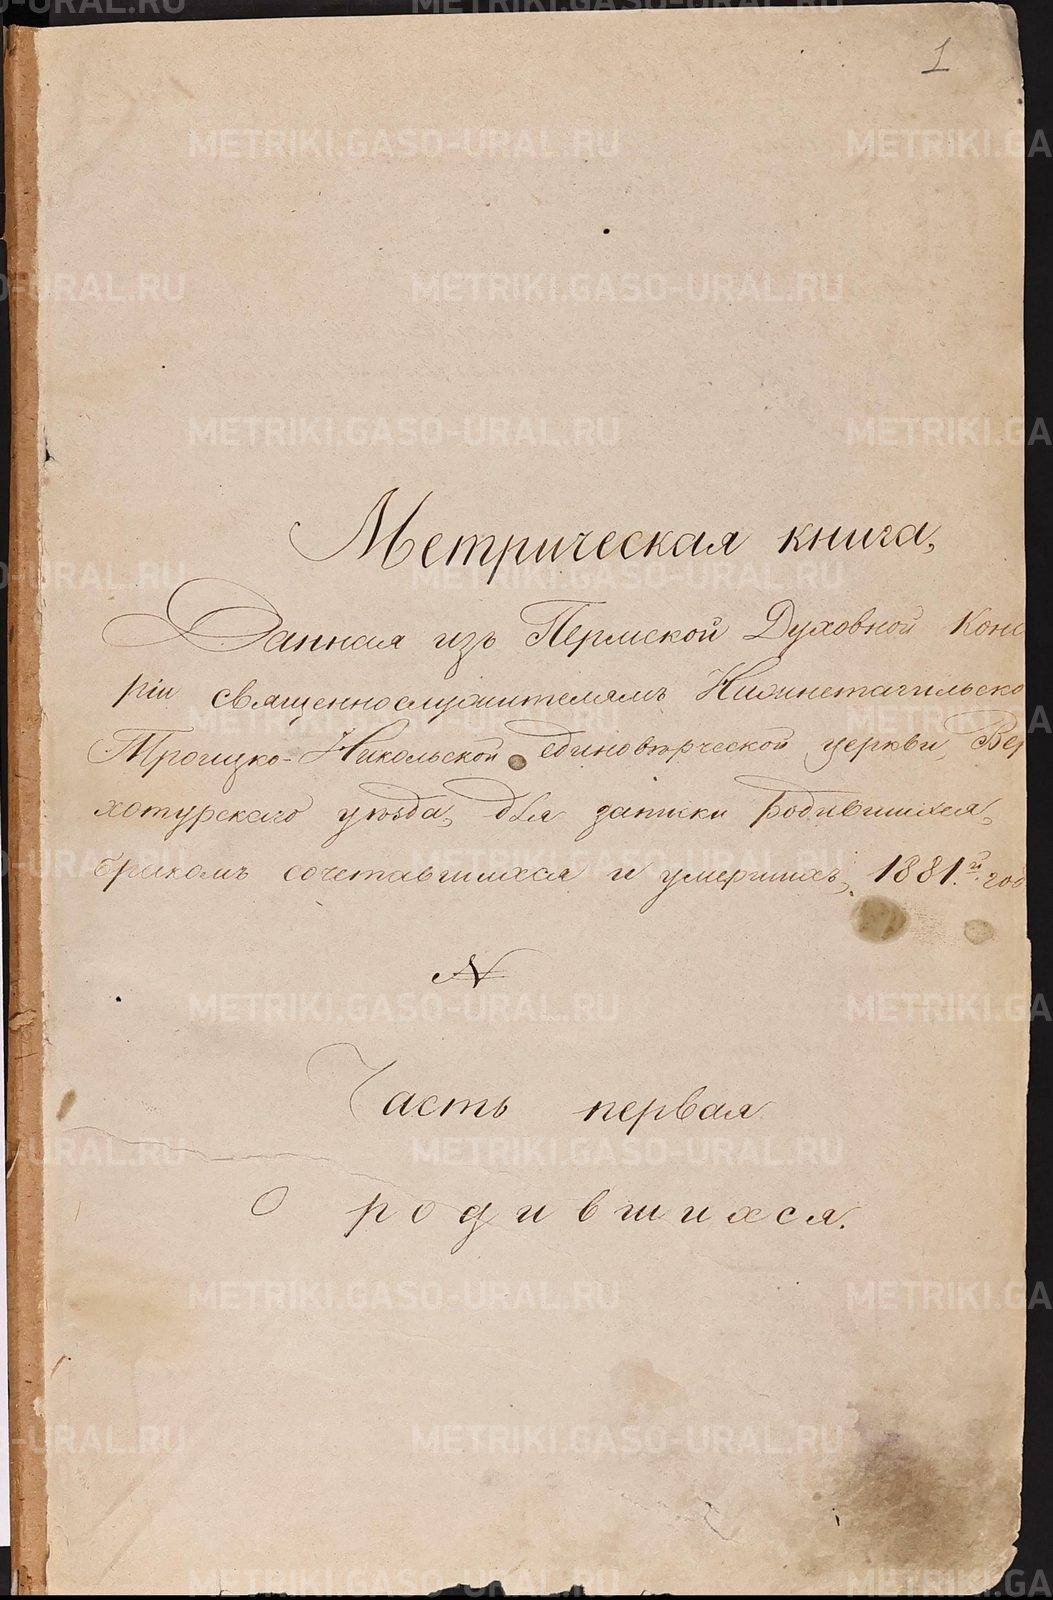 1
Метрическая книга,
Данная изъ Пермской Духовной Конс
ріи священнослужителямъ Нижнетагильско
Троицко-Никольской единовѣрческой церкви, Вер
хотурскаго уѣзда, для записки родившихся,
бракомъ сочетавшихся и умершихъ, 1881.й год
N
Часть первая
О родившихся.
METRIKI.GASO-URAL.RU